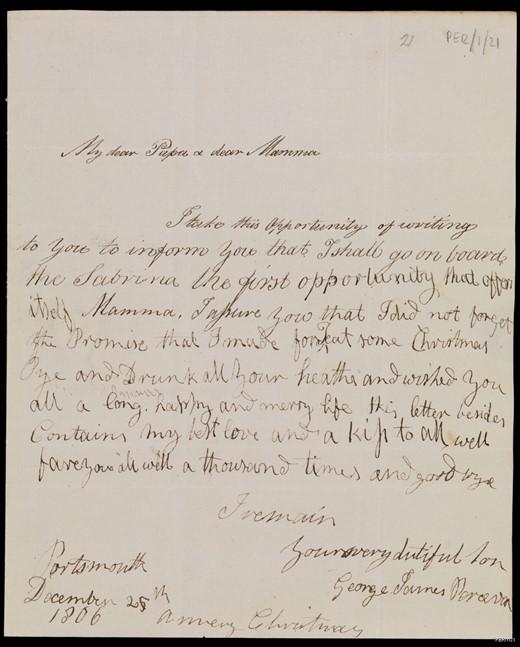 21 PER/1/21
My dear Papa & dear Mamma
I take this Opportunity of writing
to you to inform you that I shall go on board
the Sabrina the first opportunity that offers
itself Mamma. I aſsure you that I did not forget
the Promise that I made for I eat some Christmas
Pye and Drunk all your heaths and wished you
all a long, happy and merry life this letter besides
Contains my best love and a kiſs to all well
fare you all well a thousand times and good bye
I remain
Your very dutiful Son
Portsmouth
George James Perceval
December 25th
1806 a merry Christmas